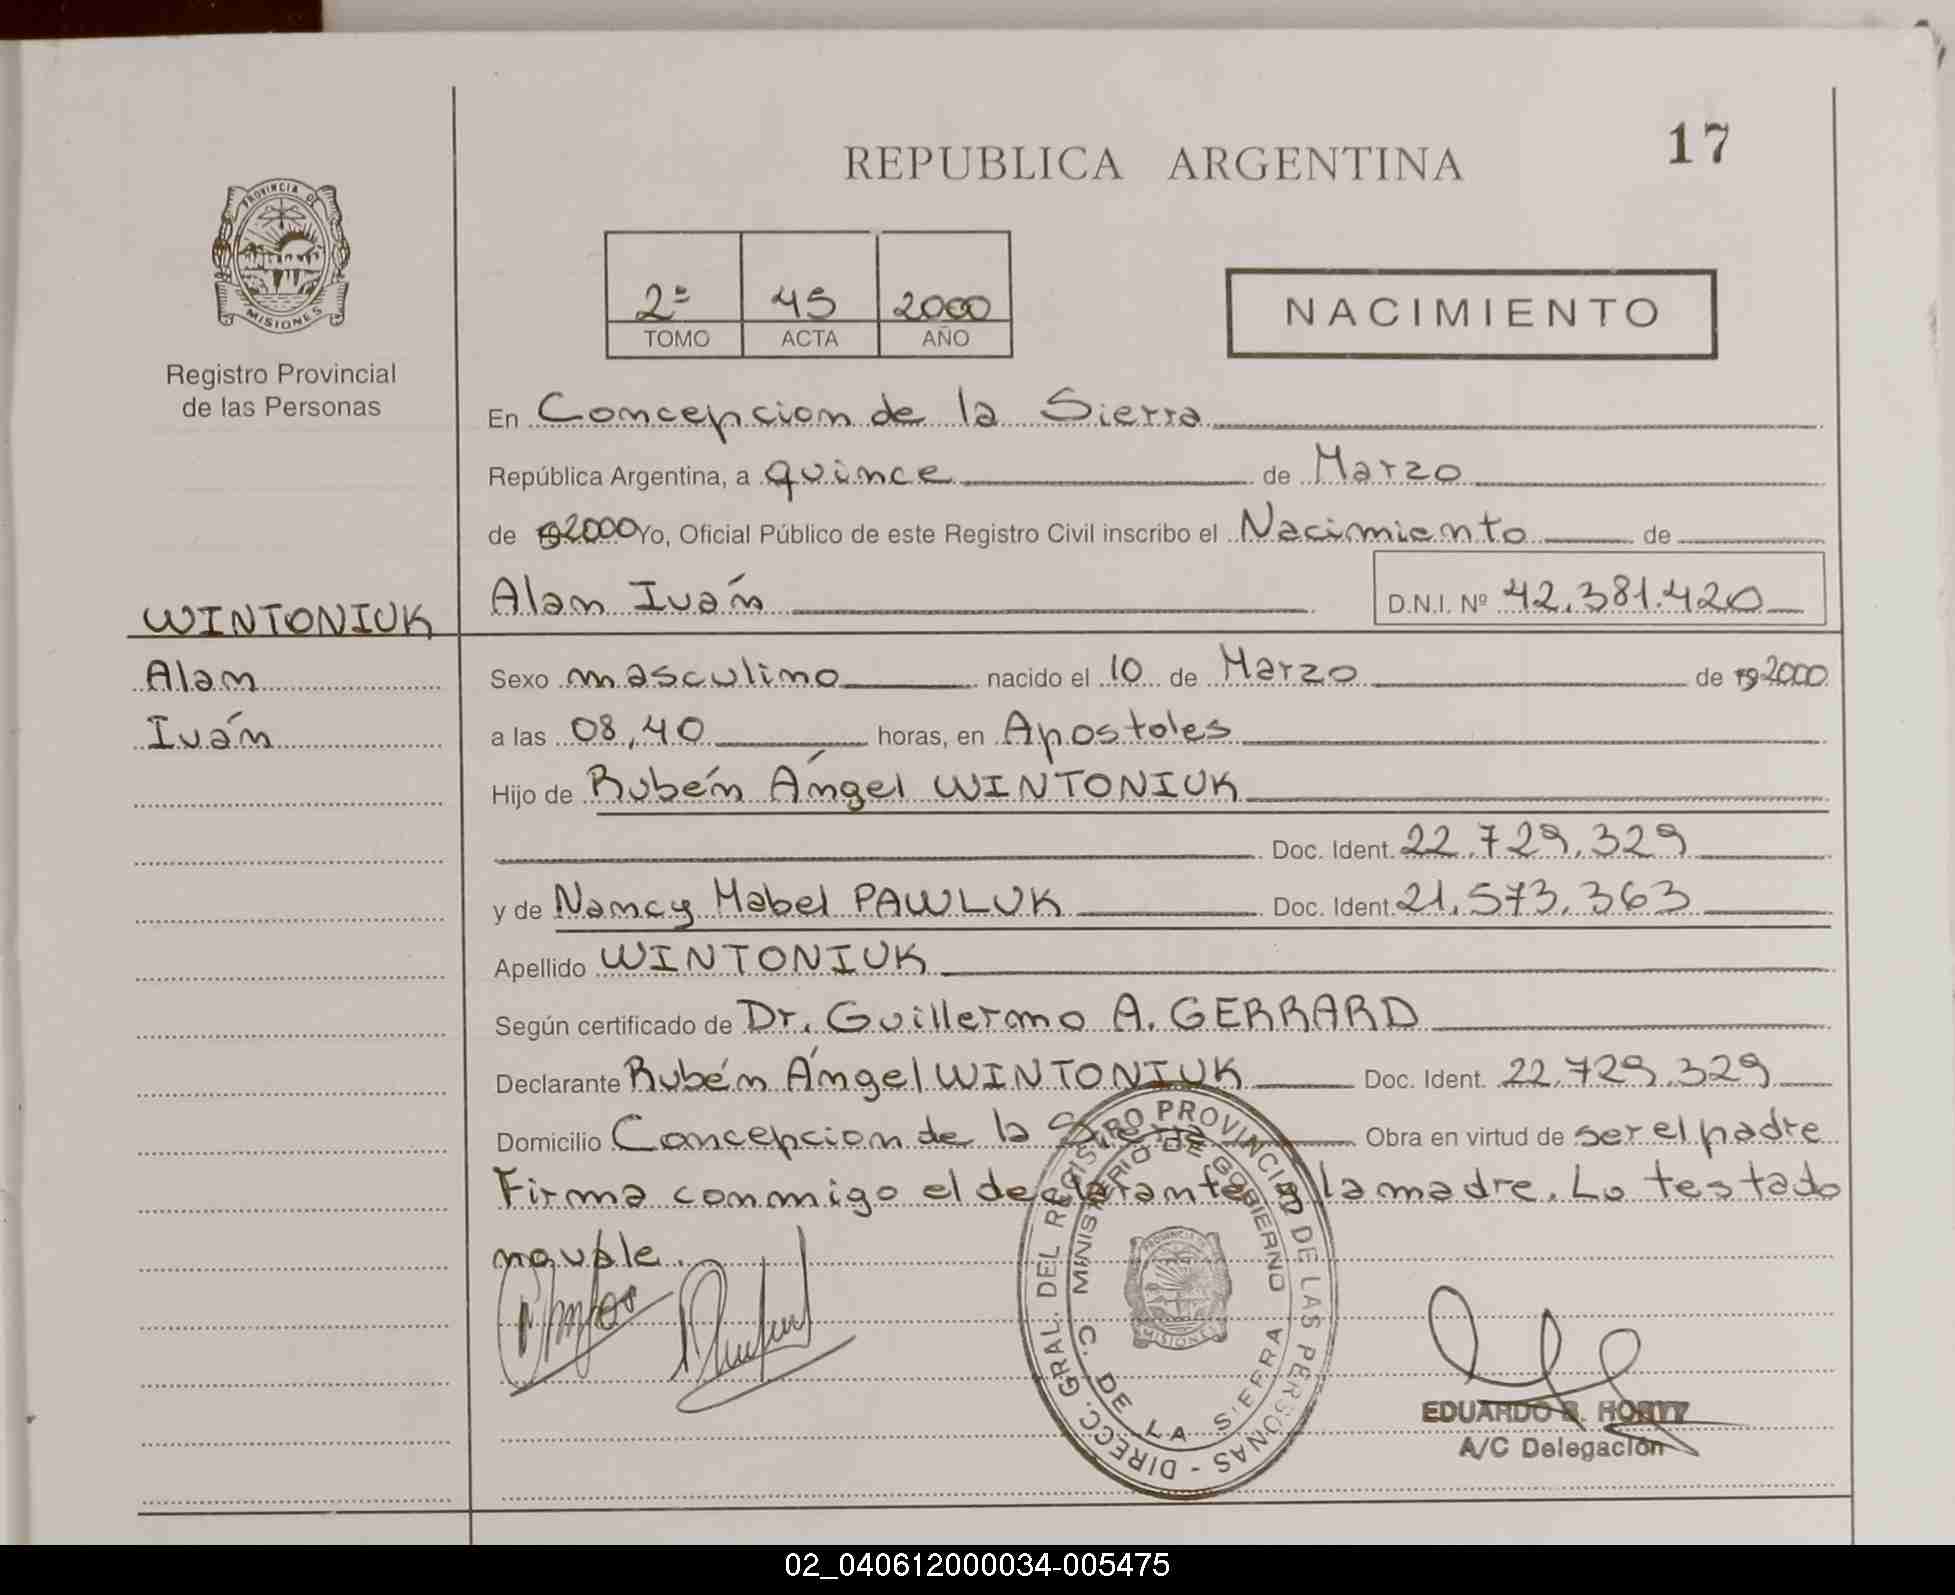 17
REPUBLICA ARGENTINA
PROVINCIA DE
MISIONES
Registro Provincial
de las Personas
2º 45 2000
TOMO ACTA AÑO
NACIMIENTO
En Concepcion de la Sierra
República Argentina, a quince de Marzo
de 19 2000 Yo, Oficial Público de este Registro Civil inscribo el Nacimiento de
Alan Iván D.N.I. Nº 42.381.420
WINTONIUK
Alan
Iván
Sexo masculino nacido el 10 de Marzo de 19 2000
a las 08,40 horas, en Apostoles
Hijo de Rubén Ángel WINTONIUK
Doc. Ident. 22.729.329
y de Nancy Mabel PAWLUK Doc. Ident. 21.573.363
Apellido WINTONIUK
Según certificado de Dr. Guillermo A. GERRARD
Declarante Rubén Ángel WINTONIUK Doc. Ident. 22.729.329
Domicilio Concepcion de la Sierra Obra en virtud de ser el padre
Firma conmigo el declarante y la madre. Lo testado
no vale.
DIRECC. GRAL. DEL REGISTRO PROVINCIAL DE LAS PERSONAS
MINISTERIO DE GOBIERNO
C. DE LA SIERRA
PROVINCIA DE
MISIONES
EDUARDO
A/C Delegación
02_040612000034-005475